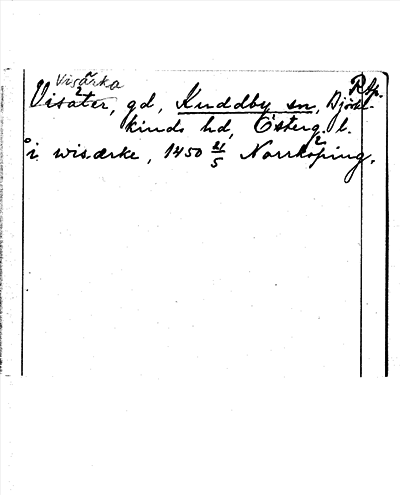 Visärka
Visäter, gd, Kuddby sn, Björke-
kinds hd, Österg. l.
i wisærke, 1450 21/5 Norrköping.